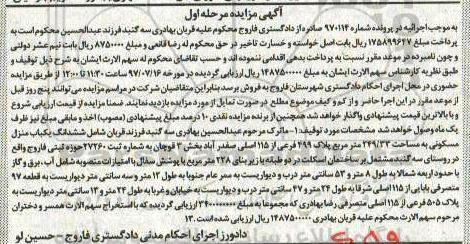 آگهی مزایده مرحله اول
به موجب اجرائیه در پرونده شماره ۹۷۰۱۱۴ صادره از دادگستری فاروج محکوم علیه قربان بهادری سه گنبد فرزند عبدالحسین محکوم است به
پرداخت مبلغ ۱۷۵۸۹۹۶۴۷ ریال بابت اصل خواسته و خسارت تاخیر در حق محکوم له رضا قانعی و مبلغ ۸۷۵۰۰۰۰ ریال بابت نیم عشر دولتی
و چون نامبرده در موعد مقرر نسبت به پرداخت بدهی اقدامی ننموده اند و حسب تقاضای محکوم له سهم الارث ایشان به شرح ذیل توقیف و
طبق نظریه کارشناس سهم الارث ایشان به مبلغ ۱۴۸۷۵۰۰۰۰ ریال ارزیابی گردیده در مورخه ۹۷/۰۷/۱۶ ساعت ۱۱:۳۰ الی ۱۲:۰۰ از طریق مزایده
حضوری در محل اجرای احکام دادگستری شهرستان فاروج به فروش برسد بنابراین متقاضیان شرکت در مراسم مزایده می توانند پنج روز قبل
از موعد مقرر در این اجرا حاضر و از کم و کیف موضوع مطلع در صورت تمایل از مورد مزایده بازدید نمایند. ضمنا مزایده از قیمت ارزیابی شروع
و با بالاترین قیمت پیشنهادی واگذار خواهد شد همچنین از برنده مزایده نقدی ۱۰ درصد مبلغ پیشنهادی (مصوب) اخذ و مابقی مبلغ نیز ظرف
یک ماه وصول خواهد شد مشخصات مورد توقیف: ۱- ماترک مرحوم عبدالحسین بهادری سه گنبد فرزند قربان شامل ششدانگ یکباب منزل
مسکونی به مساحت ۲۴۹/۳۳ متر مربع پلاک ۴۹۹ فرعی از ۱۱۵ اصلی صفدر آباد بخش ۳ قوچان به شماره ثبت ۲۷۲۶۰ حوزه ثبتی فاروج واقع
در روستای سه گنبد مشتمل بر ساختمان اسکلت در دو طبقه با زیر بنای ۲۲۸ متر مربع با پوشش سفال با امتیازات منصوبه شامل آب، برق و گاز
با حدود اربعه شمالا به طول ۸ متر و ۵۳ سانتی متر درب و دیواریست به ممر عام جنوبا به طول ۱۲ متر و سه سانتی متر دیواریست به قطعه ۹۷
متصرفی بابایی از ۱۱۵ اصلی شرقا به طول ۲۴ متر و ۴۷ سانتی متر درب و دیواریست به خیابان و غربا به طول ۲۴ متر و ۱۳ سانتی متر دیواریست به
پلاک ۵۰۵ فرعی از ۱۱۵ اصلی متصرفی رضا بهادری که مجموعا به مبلغ ۳۴۰۰۰۰۰۰۰ ریال ارزیابی گردیده که با استخراج سهم الارث همسر و دختران
مرحوم سهم الارث محکوم علیه قربان بهادری ۱۴۸۷۵۰۰۰۰ ریال ارزیابی شده است. ۱۳
دادورز اجرای احکام مدنی دادگستری فاروج - حسین لو